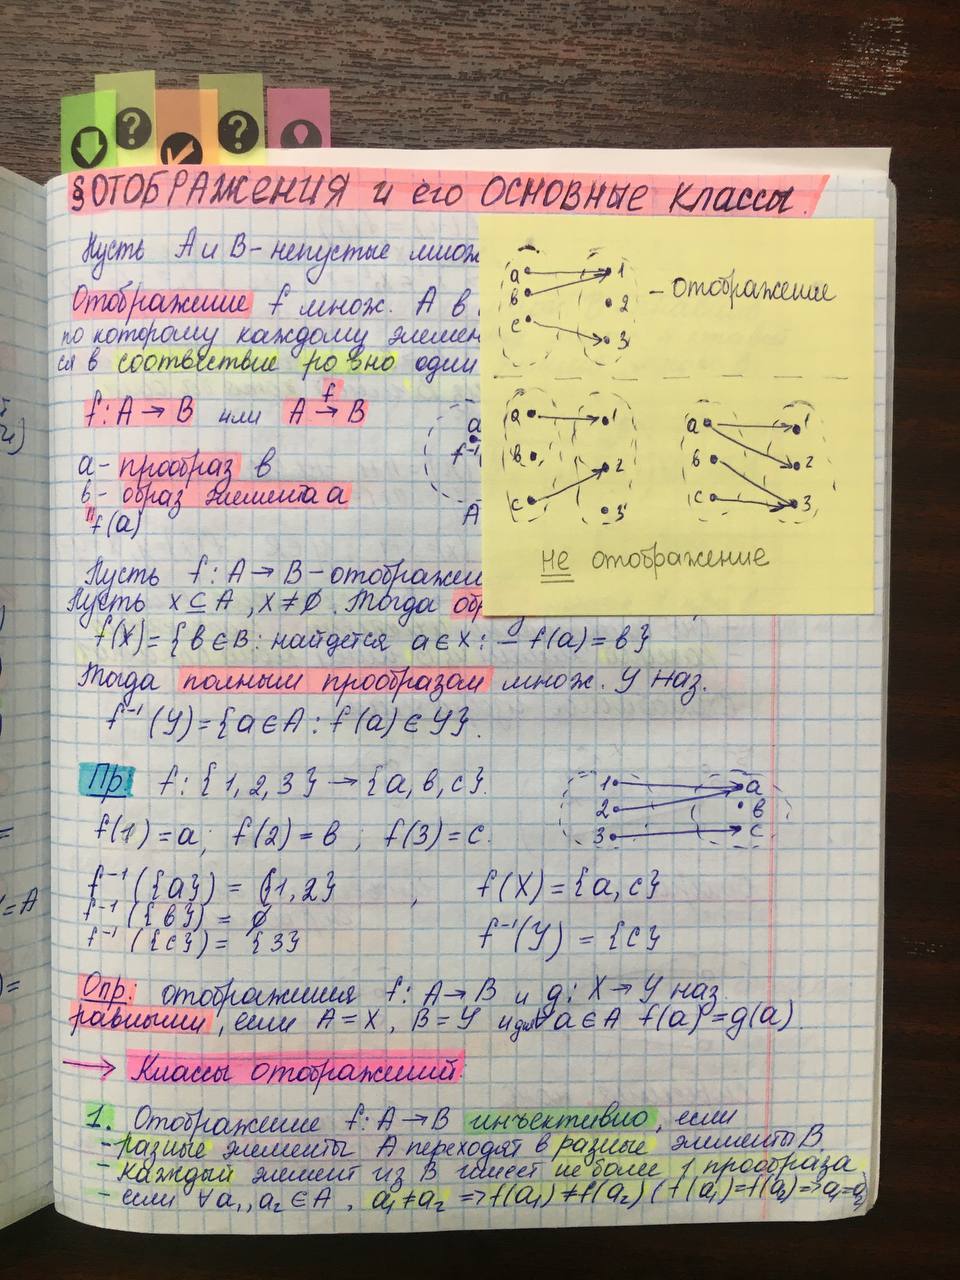 § ОТОБРАЖЕНИЯ и его ОСНОВНЫЕ КЛАССЫ.
Пусть А и В - непустые множ
Отображение f множ. А в
по которому каждому элемен
ся в соотвествие ровно один
f: A → B или A →f B
a - прообраз в
в - образ элемента а
"f(a)
a
f⁻¹
A
a
в
c
1
2
3
- отображение
a
в
c
1
2
3
a
в
c
1
2
3
не отображение
Пусть f: A → B - отображе
Пусть X ⊆ A, X ≠ ∅. Тогда обр
f(X) = {в ∈ B: найдется a ∈ X: f(a) = в}
Тогда полным прообразом множ. У наз.
f⁻¹(У) = {a ∈ A : f(a) ∈ У}.
Пр: f: {1, 2, 3} → {a, в, c}.
1
2
3
a
в
c
f(1) = a; f(2) = в ; f(3) = c.
f⁻¹({a}) = {1,2} , f(X) = {a, c}
f⁻¹({в}) = ∅
f⁻¹({c}) = {3} f⁻¹(У) = {c}
Опр: отображения f: A → B и g: X → У наз.
равными, если A = X, B = У и для ∀ a ∈ A f(a) = g(a).
→ Классы отображений.
1. Отображение f: A → B инъективно, если
- разные элементы А переходят в разные элементы В
- каждый элемент из В имеет не более 1 прообраза
- если ∀ a₁, a₂ ∈ A, a₁ ≠ a₂ => f(a₁) ≠ f(a₂) (f(a₁) = f(a₂) => a₁ = a₂)